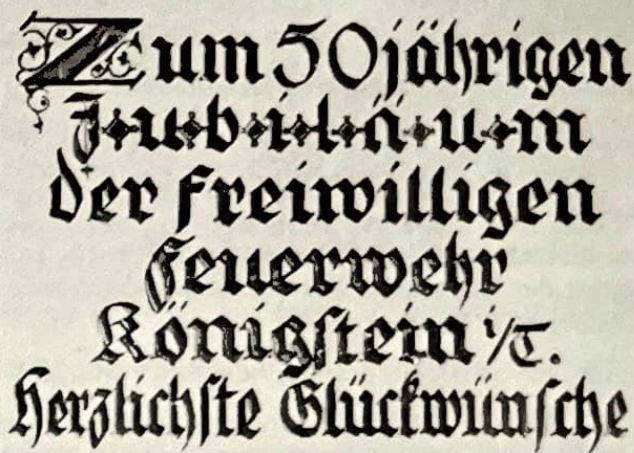 Zum 50jährigen
J·u·b·i·l·ä·u·m
der freiwilligen
Feuerwehr
Königstein i/T.
Herzlichste Glückwünsche